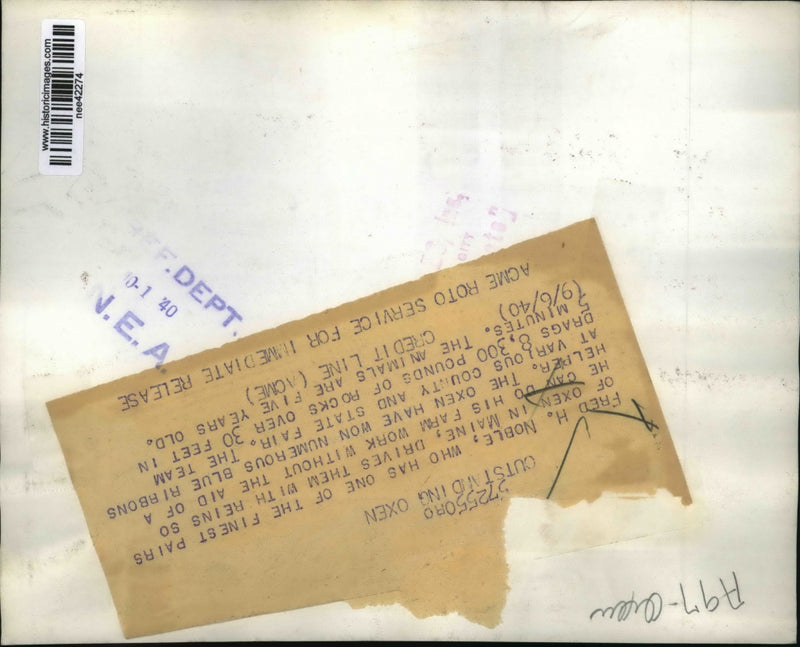 www.historicimages.com
nee42274
REF. DEPT.
0-1 '40
N.E.A.
572550RO
OUTSTANDING OXEN
FRED H. NOBLE, WHO HAS ONE OF THE FINEST PAIRS
OF OXEN IN MAINE, DRIVES THEM WITH REINS SO
HE CAN DO HIS FARM WORK WITHOUT THE AID OF A
HELPER. THE OXEN HAVE WON NUMEROUS BLUE RIBBONS
AT VARIOUS COUNTY AND STATE FAIR. THE TEAM
DRAGS 8,300 POUNDS OF ROCKS OVER 30 FEET IN
5 MINUTES. THE ANIMALS ARE FIVE YEARS OLD.
(9/6/40) CREDIT LINE (ACME)
ACME ROTO SERVICE FOR IMMEDIATE RELEASE
A97-Oxen